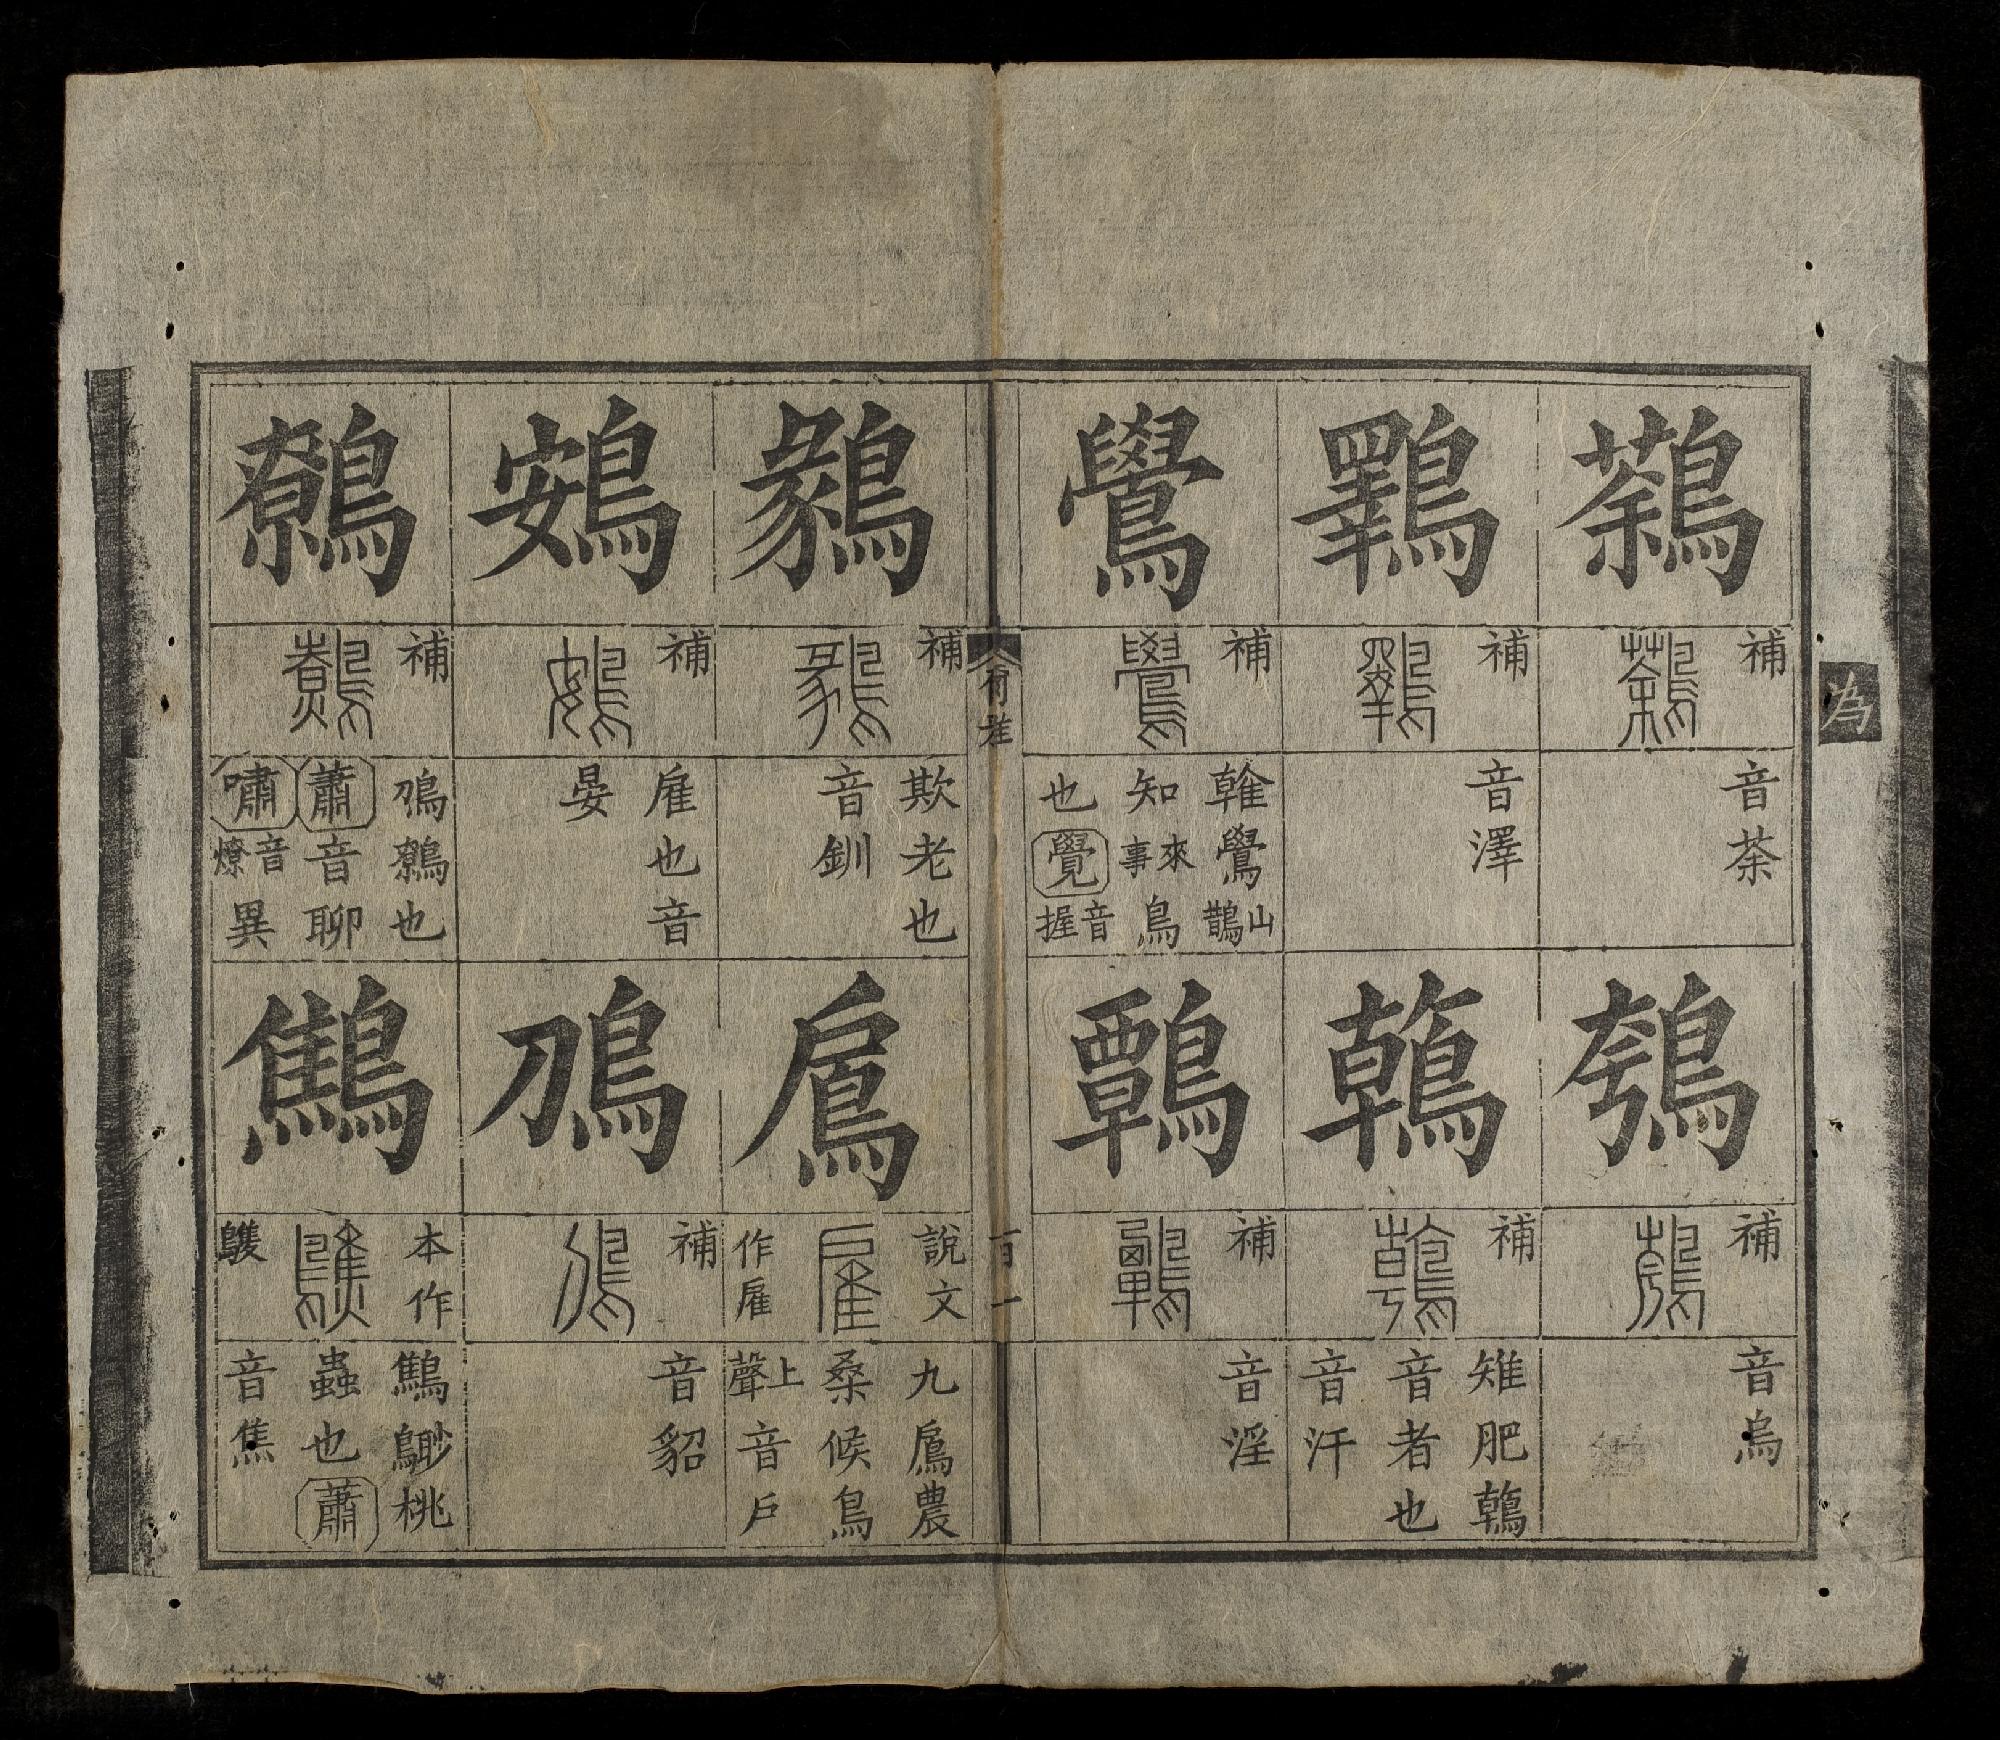 為
鷋
補
音荼
鸅
補
音澤
鷽
補
鶾鷽山鵲
知來事鳥
也覺音握
鴮
補
音烏
鶾
補
雉肥鶾
音者也
音汗
鷣
補
音淫
有差
百一
補
欺老也
音釗
鴳
補
雇也音
晏
鷯
補
鳭鷯也
蕭音聊
嘯音燎異
鳸
說文
作雇
九鳸農
桑候鳥
上聲音戶
鳭
補
音貂
鷦
本作
鷦䳂桃
蟲也蕭
音焦